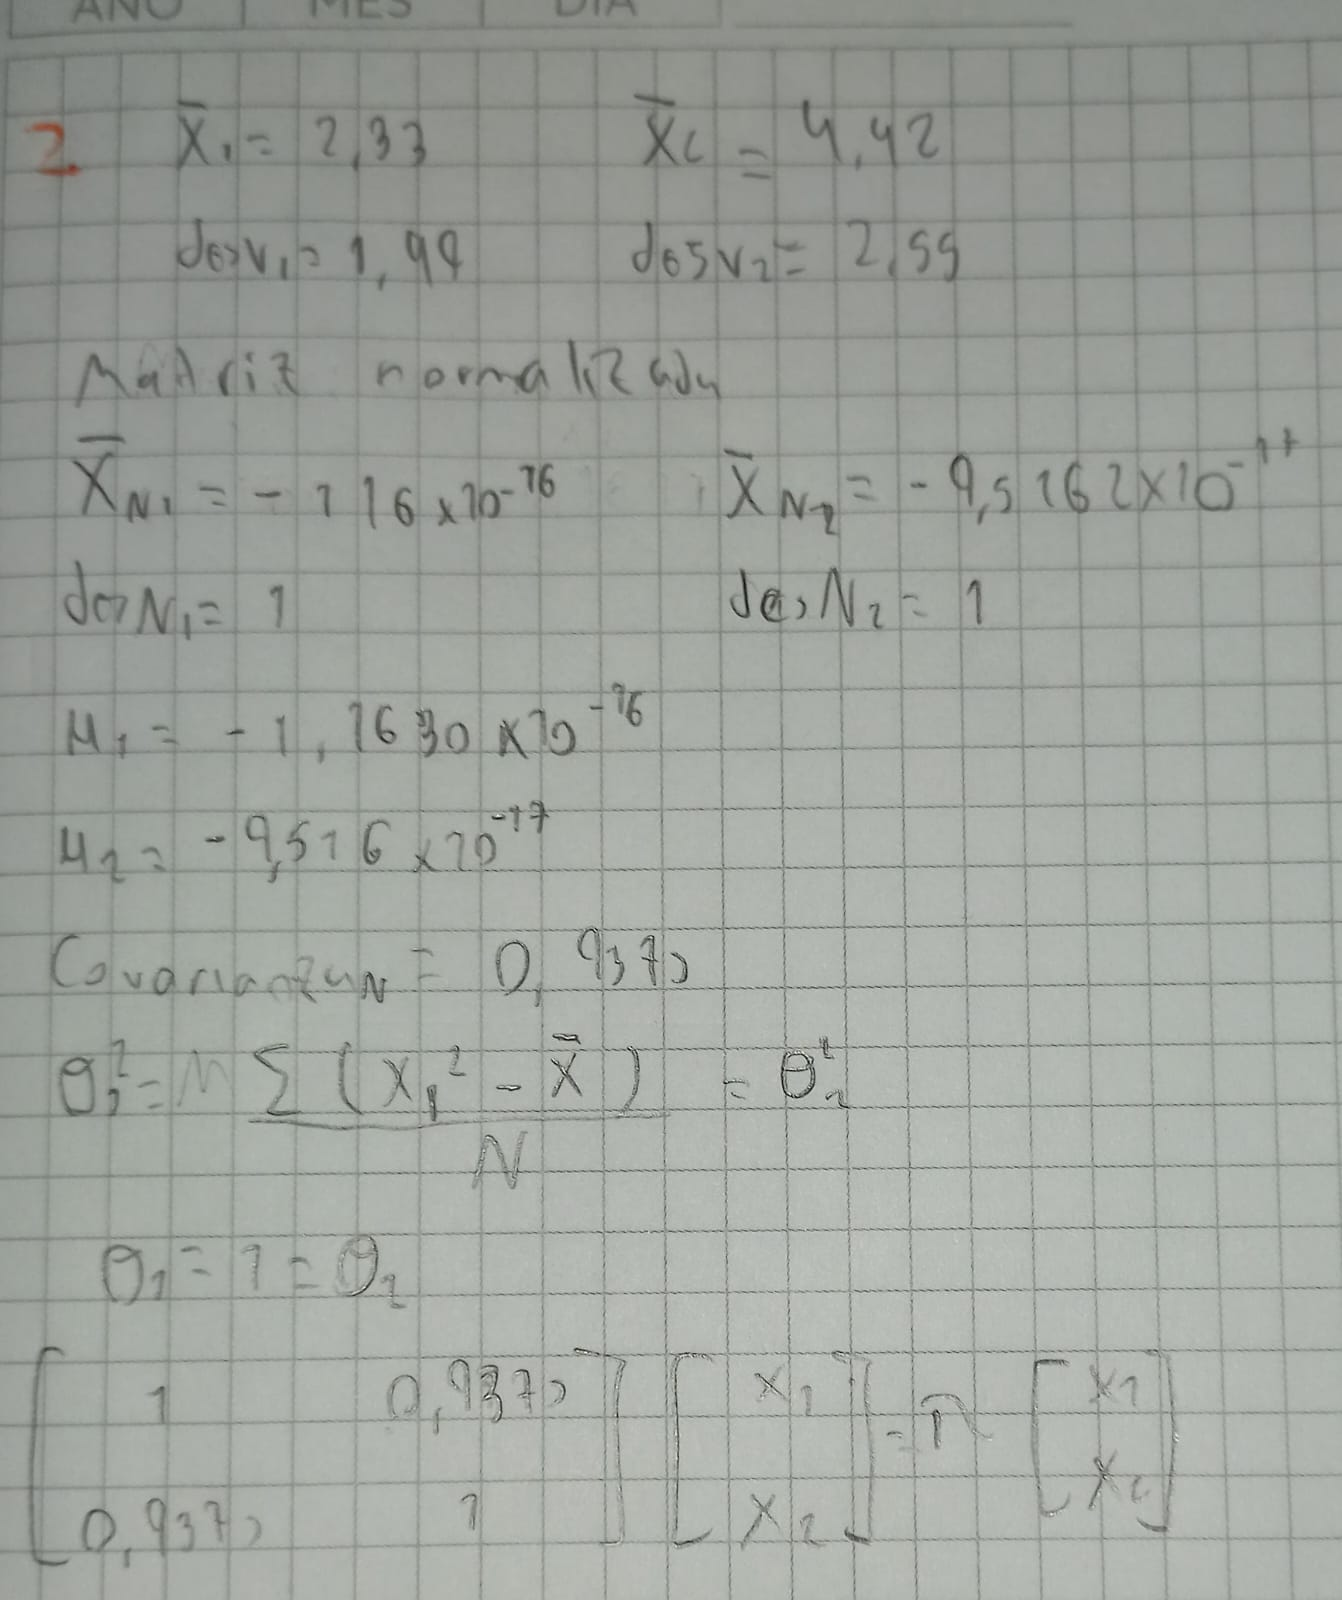 AÑO MES DIA
2. X̄₁ = 2,33 X̄₂ = 4,42
desv₁ = 1,99 desv₂ = 2,59
Matriz normalizada
X̄N₁ = -116x10⁻¹⁶ X̄N₂ = -9,5162x10⁻¹⁷
desN₁ = 1 desN₂ = 1
μ₁ = -1,1630x10⁻¹⁶
μ₂ = -9,516x10⁻¹⁷
CovarianzaN = 0,937
θ₁² = Σ(x₁² - x̄) / N = θ₂²
θ₁ = 1 = θ₂
[1 0,937] [x₁] = λ [x₁]
[0,937 1] [x₂] [x₂]